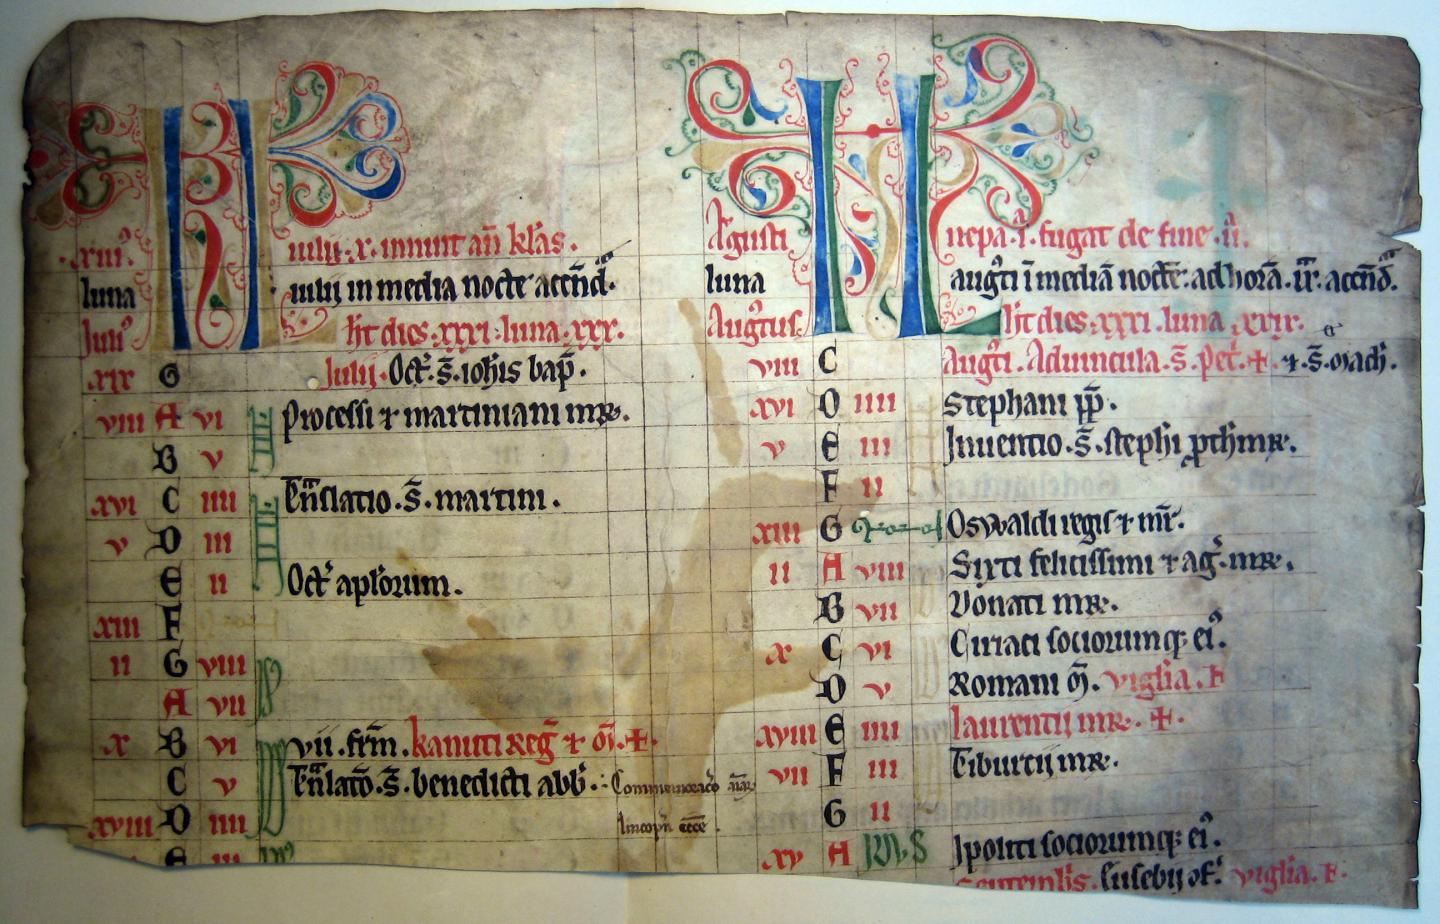 .xiii. KL iulii .x. innuit añ klas.
luna iulij in media nocte accñd.
Juli' ht dies .xxxi. luna .xxx.
xix G Julij. Oct. s. iohis bap.
viii A vi Processi & martiniani mr.
B v
xvi C iiii Tñslatio .s. martini.
v D iii
E ii Oct aplorum.
xiii F
ii G viii
A vii
x B vi vii. frm. kanuti reg & m. +
C v Tñslato .s. benedicti abb.
xviii D iiii
E iii
Agusti KL nepa .i. fugat de fine .ii.
luna augti i media nocte. ad hora .iii. accñd.
Augtus. ht dies .xxxi. luna .xxix.
viii C Augti. Aduincula .s. Pet. + & .s.
xvi D iiii Stephani pp.
v E iii Inuentio .s. stephi pthmr.
F ii
xiii G Oswaldi regis & mr.
ii A viii Sixti felicissimi & ag. mr.
B vii Donati mr.
x C vi Ciriaci sociorumq; ei'.
D v Romani m. viglia.
xviii E iiii laurentij mr. +
vii F iii Tiburtij mr.
G ii
xv A IDUS Ipoliti sociorumq; ei'.
Septembis. Eusebij viglia.